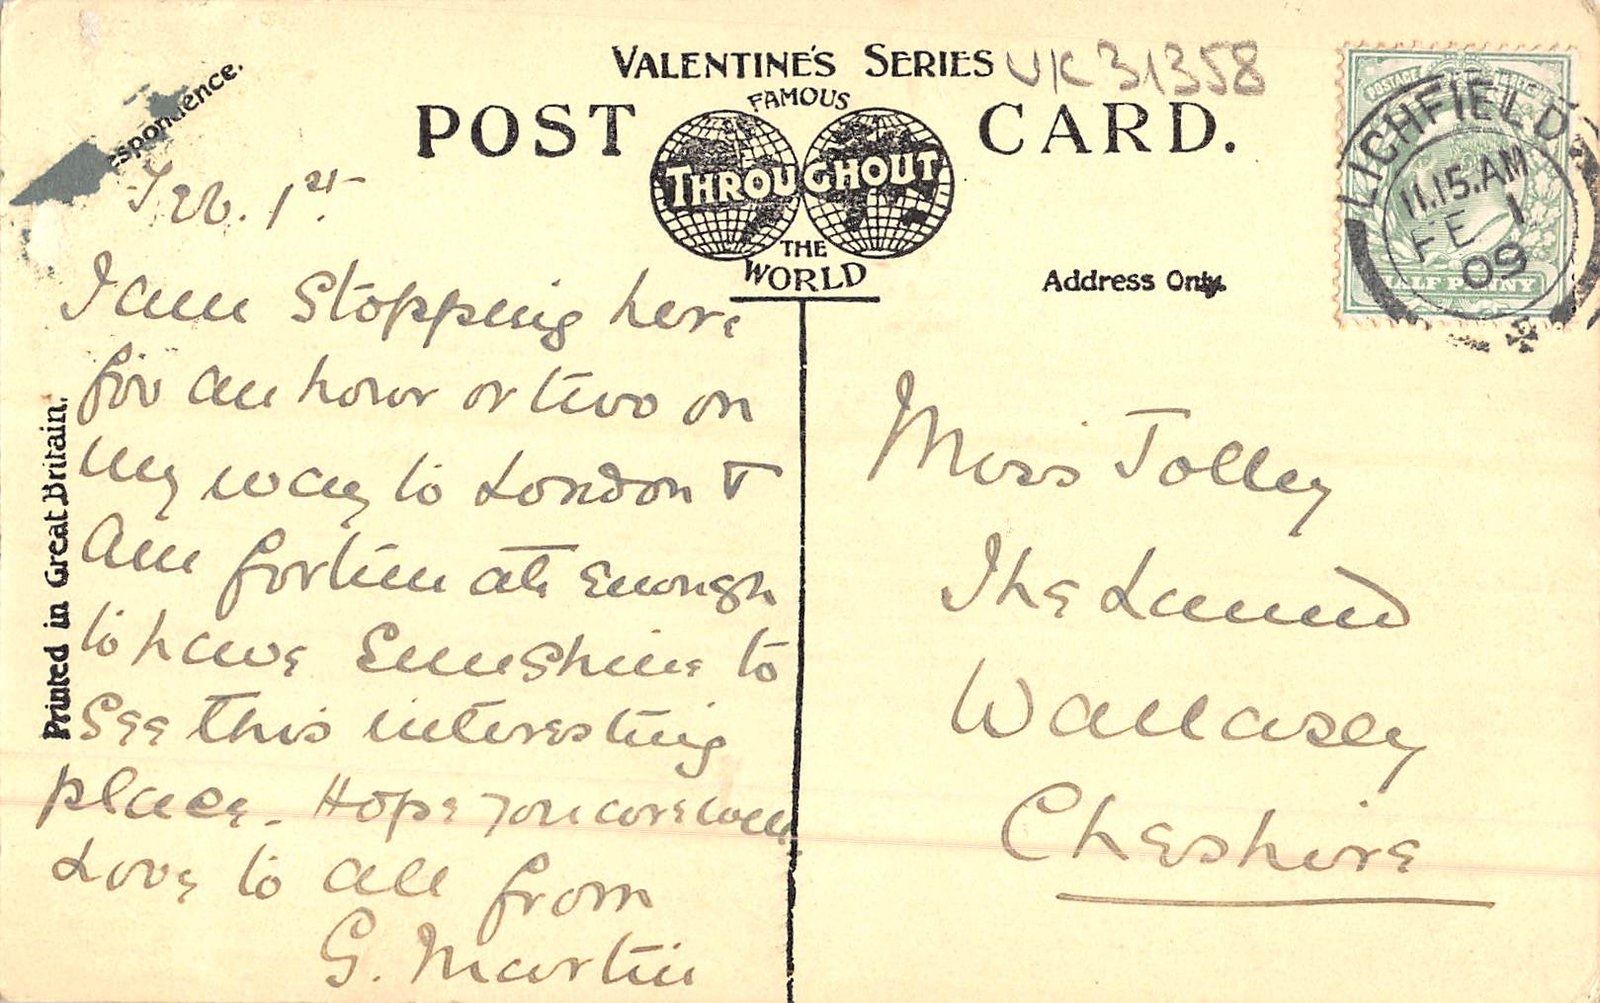 VALENTINE'S SERIES UK 31358
FAMOUS
POST THROUGHOUT CARD.
THE
WORLD
espondence.
Address Only.
Printed in Great Britain.
POSTAGE
HALFPENNY
LICHFIELD
11.15.AM
FE 1
09
Feb. 1st.
I am stopping here
for an hour or two on
my way to London &
am fortunate enough
to have sunshine to
see this interesting
place. Hope you are well.
Love to all from
G. Martin
Miss Tolley
The Laund
Wallasey
Cheshire